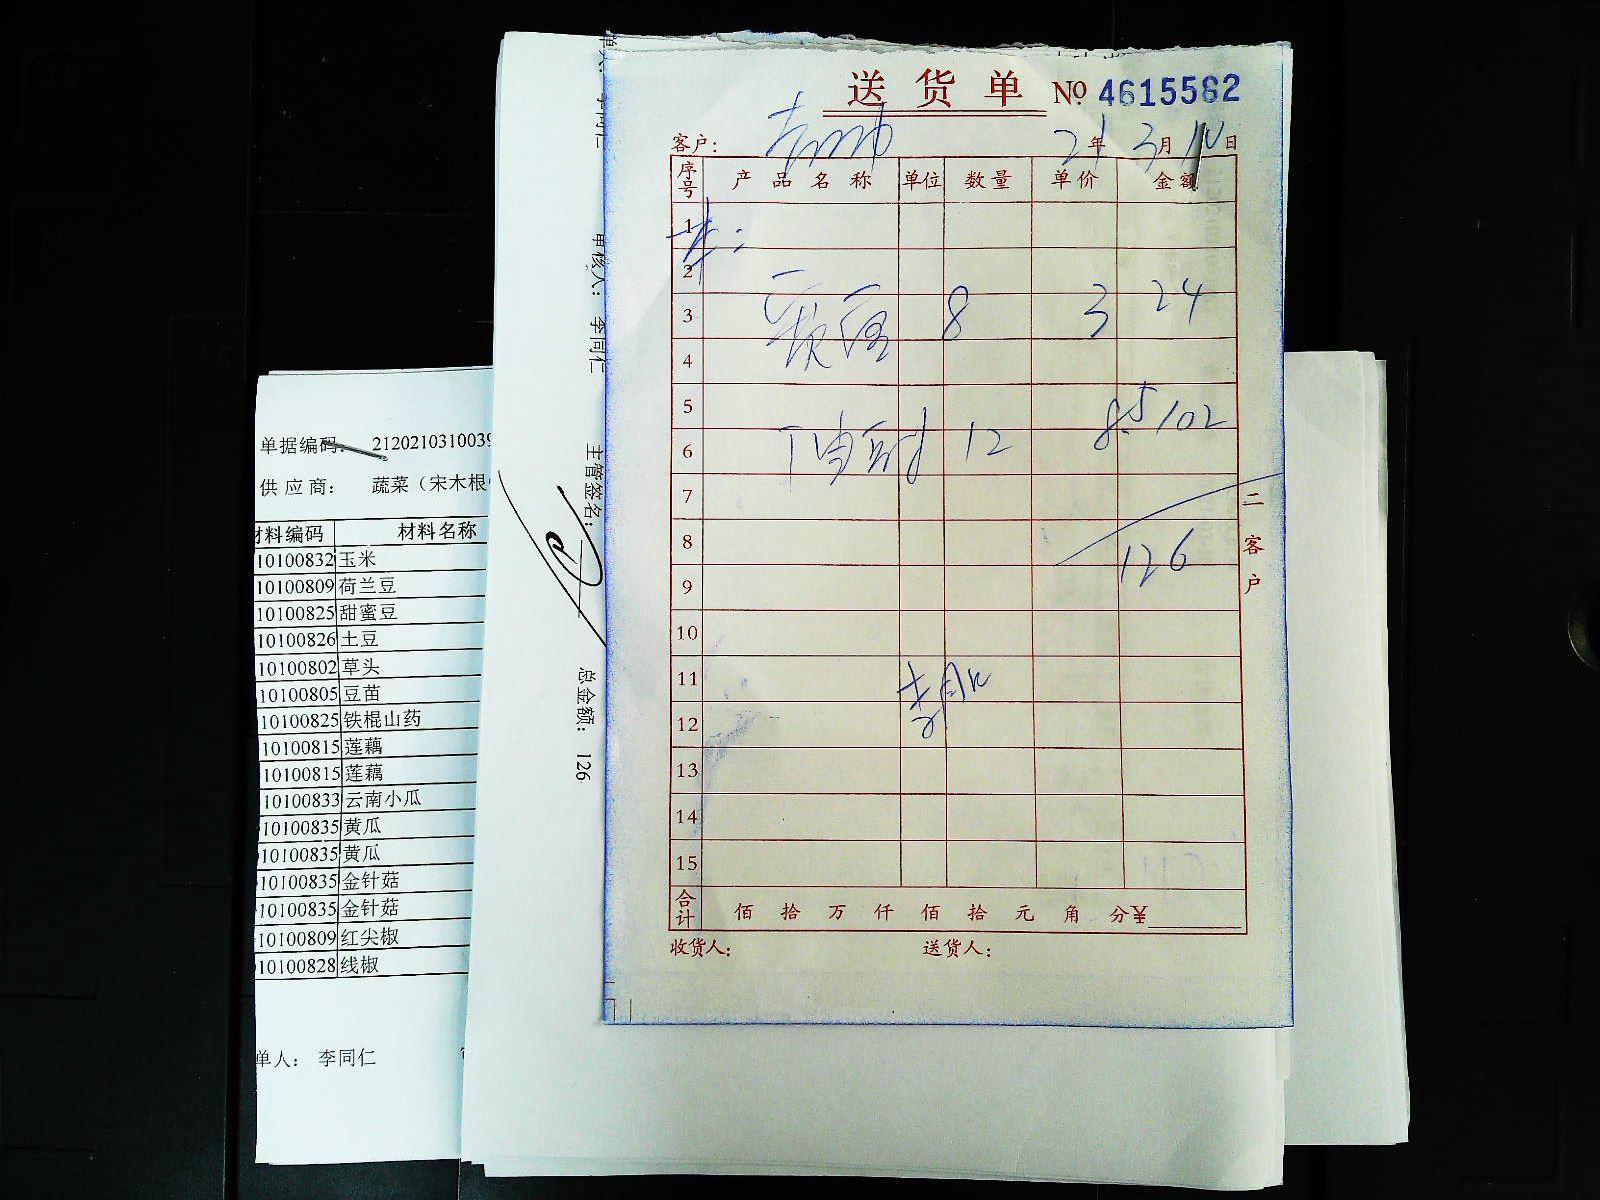 送货单 № 4615582
客户： 21年3月10日
序号 产品名称 单位 数量 单价 金额
1
2
3 8 3 24
4
5
6 12 8.5 102
7
8 126
9
10
11
12
13
14
15
合计 佰 拾 万 仟 佰 拾 元 角 分 ¥
收货人： 送货人：
二客户
审核人： 李同仁
主管签名：
总金额： 126
单据编码： 212021031003
供应商： 蔬菜（宋木根
材料编码 材料名称
10100832 玉米
10100809 荷兰豆
10100825 甜蜜豆
10100826 土豆
10100802 草头
10100805 豆苗
10100825 铁棍山药
10100815 莲藕
10100815 莲藕
10100833 云南小瓜
10100835 黄瓜
10100835 黄瓜
10100835 金针菇
10100835 金针菇
10100809 红尖椒
10100828 线椒
单人： 李同仁